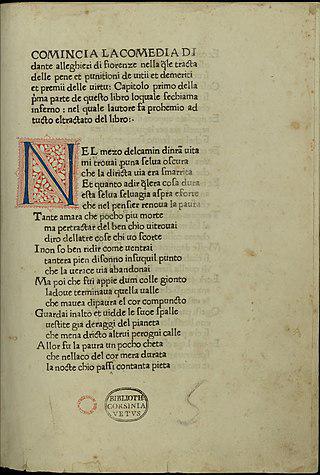 COMINCIA LA COMEDIA DI
dante alleghieri di fiorenze nella q̄le tracta
delle pene et punitioni de uitii et demeriti
et premii delle uirtu: Capitolo primo della
p̄ma parte de questo libro loquale sechiama
inferno: nel quale lautore fa prohemio ad
tucto eltractato del libro:.
NEL mezo delcamin dinr̄a uita
mi trouai ꝑuna selua oscura
che la diricta uia era smarrita
Et quanto adir q̄lera cosa dura
esta selua seluagia aspra eforte
che nel pensier renoua la paura
Tante amara che pocho piu morte
ma pertractar del ben chio uitrouai
diro dellatre cose chi uo scorte
I non so ben ridir come uentrai
tantera pien disonno insuquil punto
che la uerace uia abandonai
Ma poi che fui appie dum colle gionto
ladoue terminaua quella ualle
che mauea dipaura el cor compuncto
Guardai inalto et uidde le sue spalle
uestite gia deraggi del pianeta
che mena dricto altrui perogni calle
Allor fu la paura un pocho cheta
che nellaco del cor mera durata
la nocte chio passi contanta pieta
BIBLIOTH
CORSINIA
VETVS